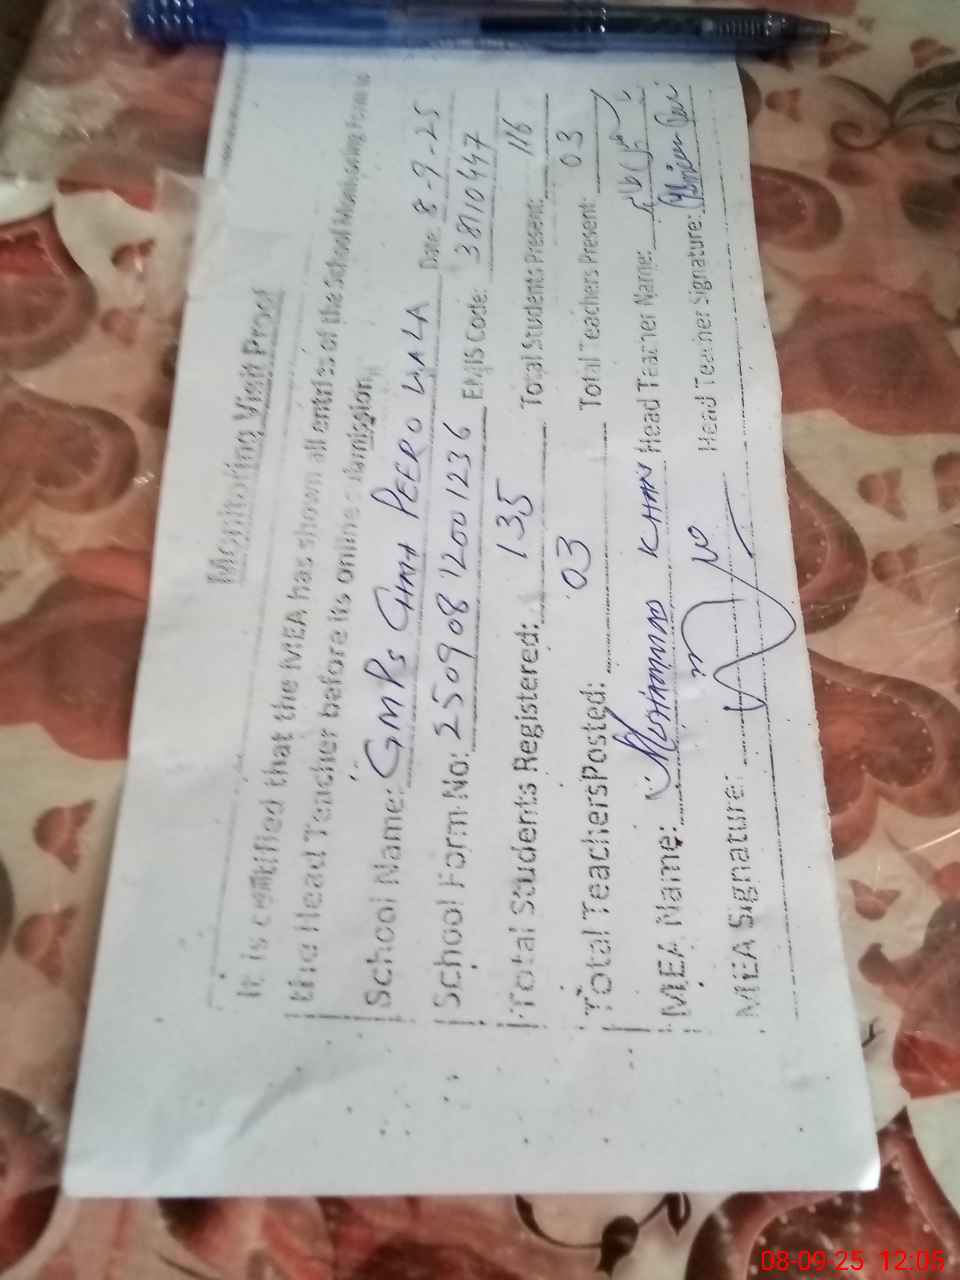 Monitoring Visit Proof
It is certified that the MEA has shown all entries of the School Monitoring Form to
the Head Teacher before its online submission
School Name: GMPS GHHA PEERO WALA Date: 8-9-25
School Form No: 25090812001236 EMIS Code: 38110447
Total Students Registered: 135 Total Students Present: 116
Total Teachers Posted: 03 Total Teachers Present: 03
MEA Name: MUHAMMAD KHAN Head Teacher Name:
MEA Signature: Head Teacher Signature:
08-09-25 12:05